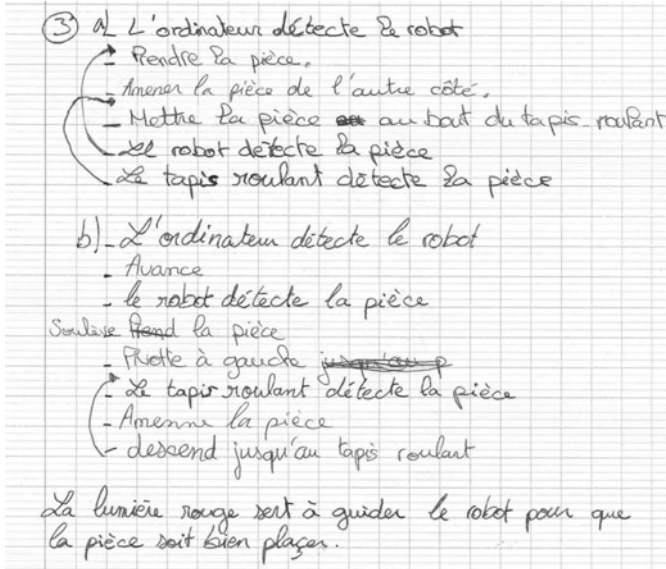 ③ a) L'ordinateur détecte le robot
- Prendre la pièce.
- Amener la pièce de l'autre côté.
- Mettre la pièce au bout du tapis-roulant
- Le robot détecte la pièce
- Le tapis roulant détecte la pièce
b) - L'ordinateur détecte le robot
- Avance
- le robot détecte la pièce
Soulève Prend la pièce
- Pivotte à gauche jusqu'au p
- Le tapis roulant détecte la pièce
- Amenne la pièce
- descend jusqu'au tapis roulant
La lumière rouge sert à guider le robot pour que
la pièce soit bien plaçer.